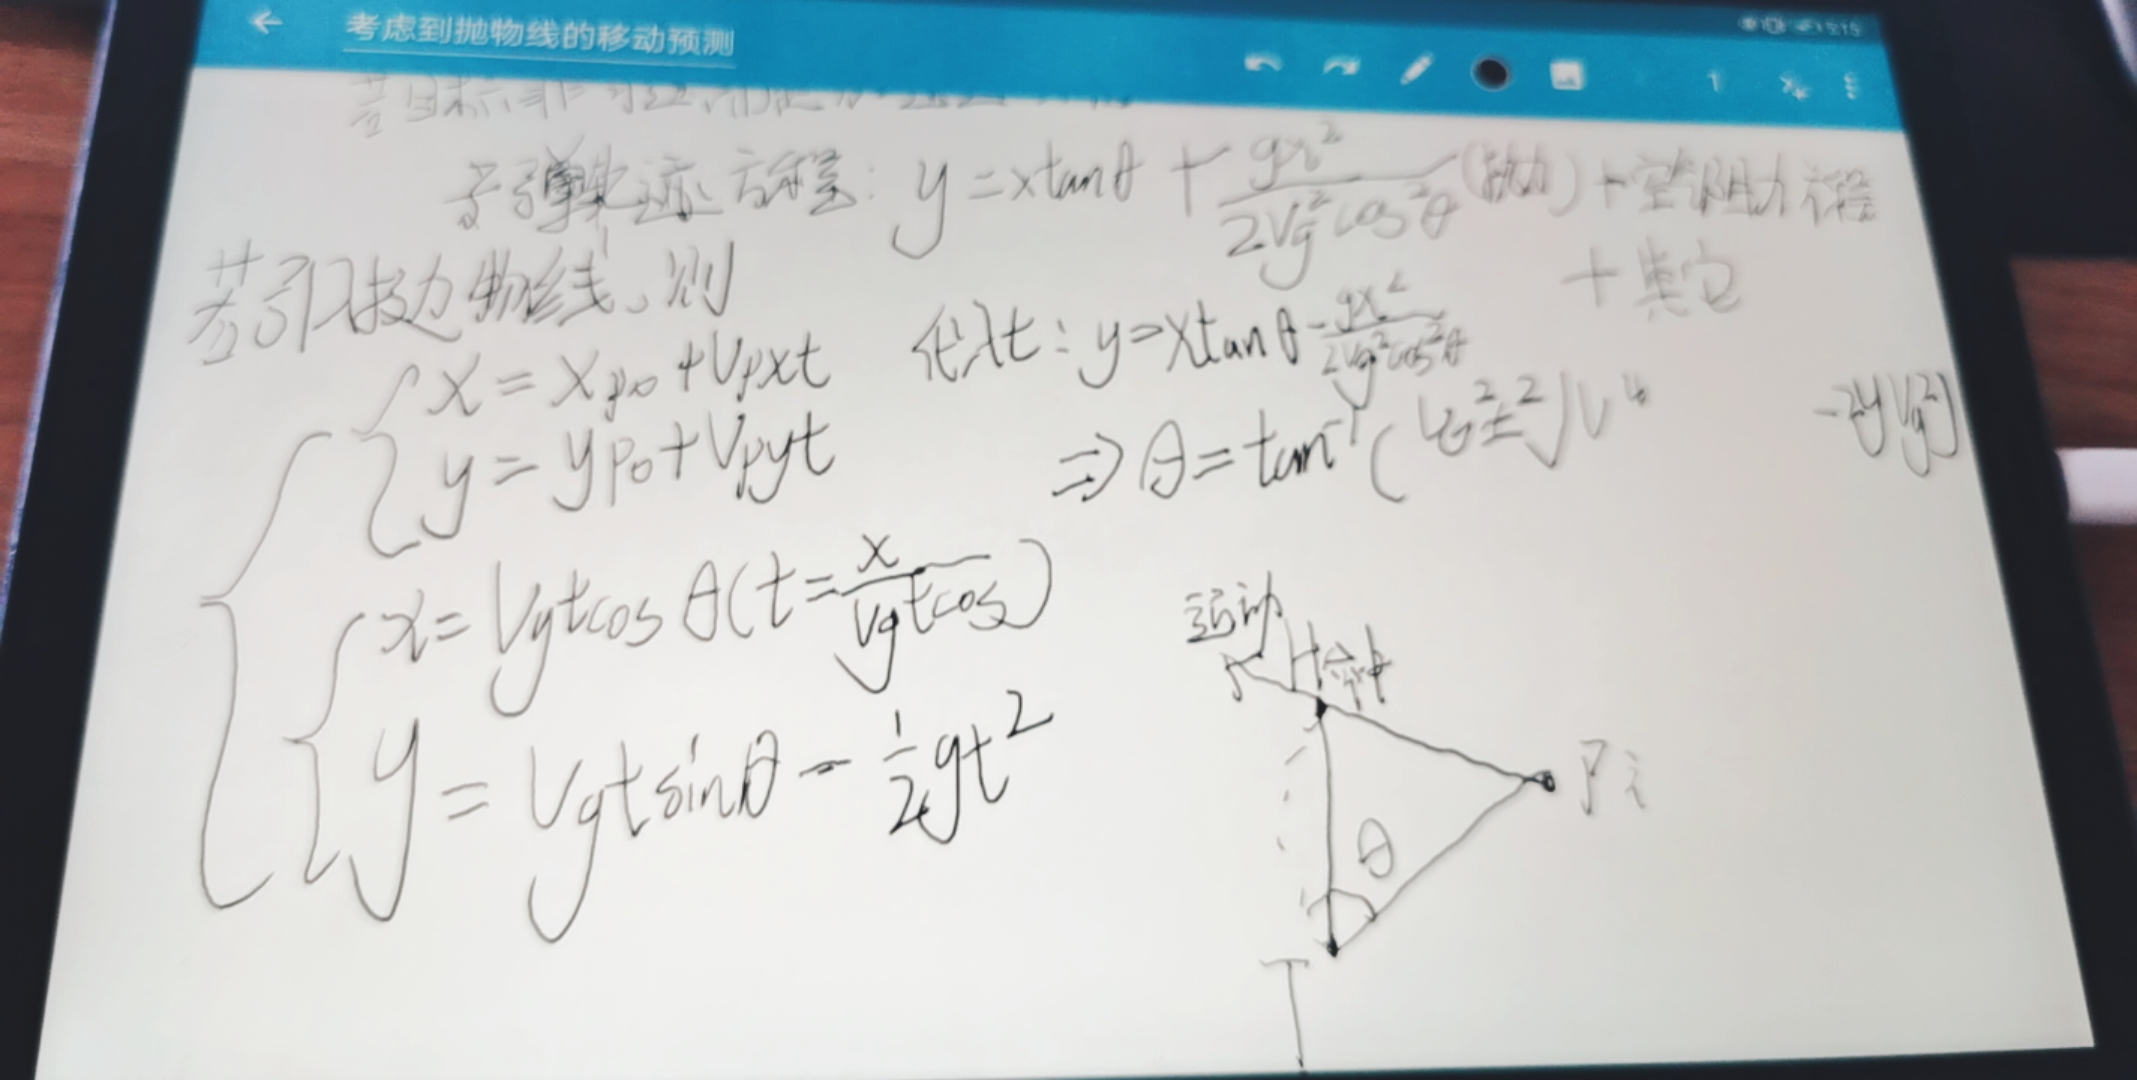 考虑到抛物线的移动预测
15:15
子弹轨迹方程: y=xtanθ + gx²/2Vg²cos²θ (抛力) + 空气阻力方程
+ 其它
若引入抛物线,则
x = xp0 + Vpxt
y = yp0 + Vpyt
代入t: y=xtanθ - gx²/2Vg²cos²θ
⇒ θ = tan⁻¹( Vg²±²√V⁴ -2yVg²)
x = Vgtcosθ (t = x/Vgtcos)
y = Vgtsinθ - ½gt²
运动
命中
Pi
θ
T